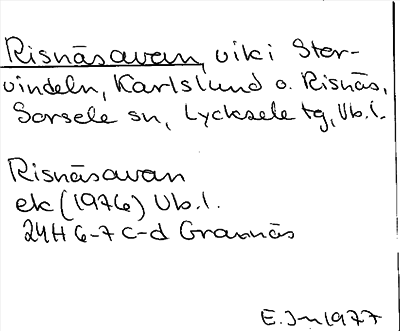 Risnäsavan, vik i Stor-
vindeln, Karlslund o. Risnäs,
Sorsele sn, Lycksele tg, Vb.l.
Risnäsavan
ek (1976) Vb.l.
24H 6-7 c-d Grannäs
E.J-n 1977